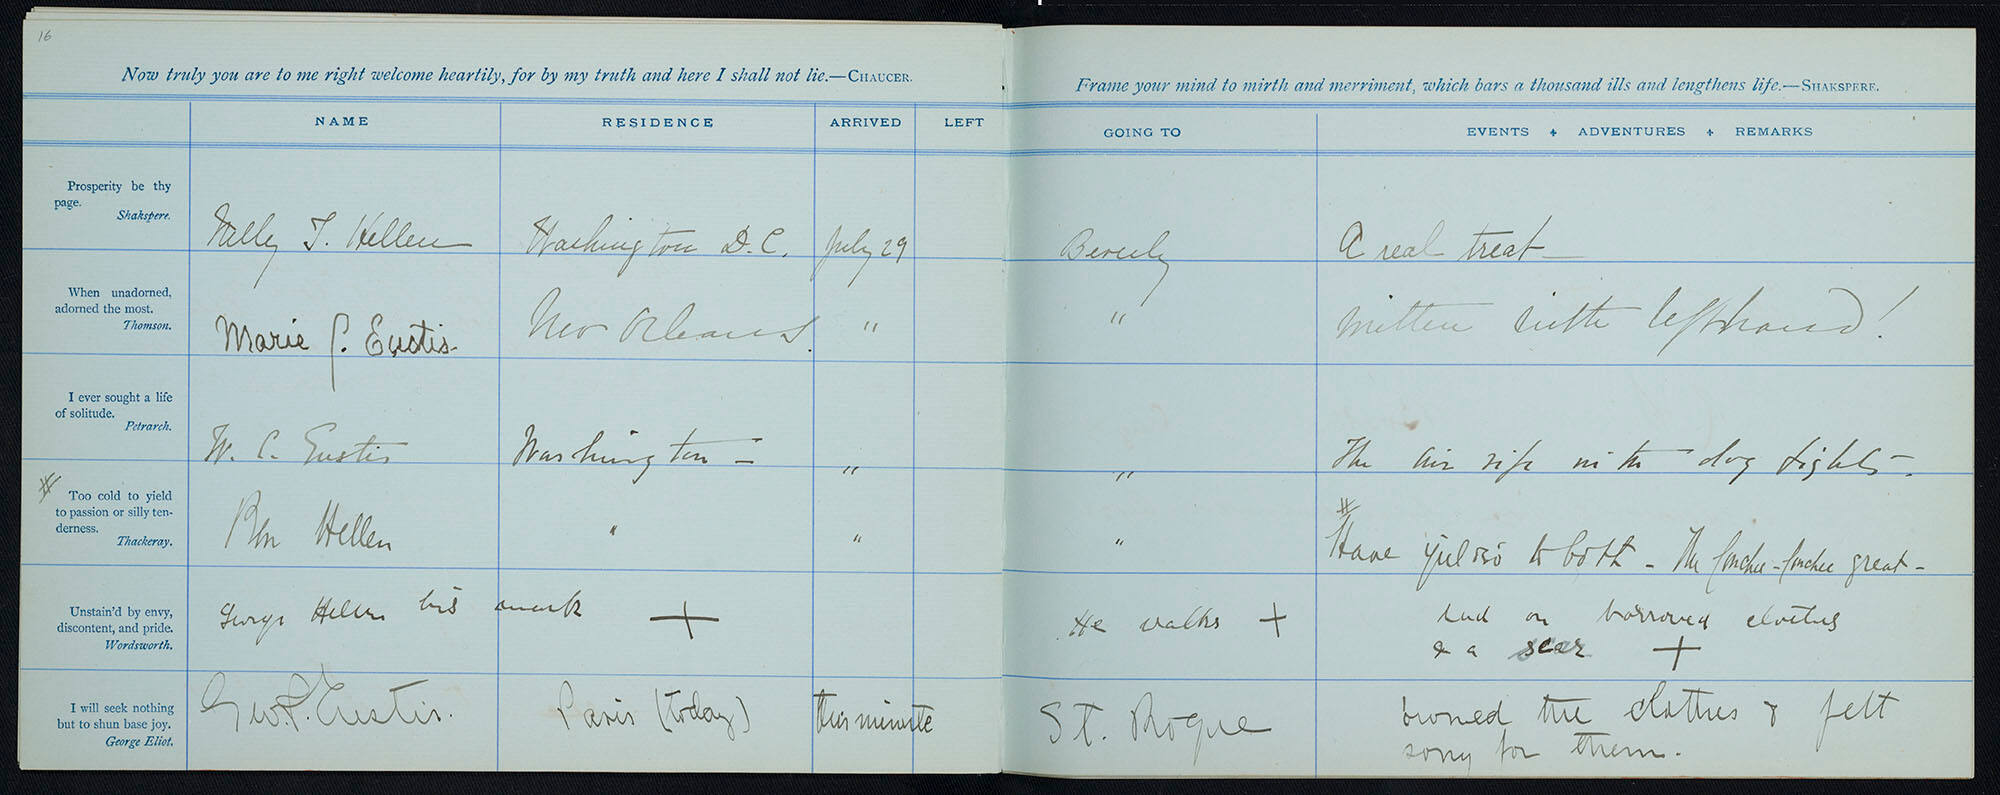 16
Now truly you are to me right welcome heartily, for by my truth and here I shall not lie.—CHAUCER.
Frame your mind to mirth and merriment, which bars a thousand ills and lengthens life.—SHAKSPERE.
NAME RESIDENCE ARRIVED LEFT GOING TO EVENTS + ADVENTURES + REMARKS
Prosperity be thy
page.
Shakspere.
T. Hellen Washington D.C. July 29 Beverly A real treat—
When unadorned,
adorned the most.
Thomson.
Marie C. Eustis New Orleans. " " with left hand!
I ever sought a life
of solitude.
Petrarch.
W. C. Eustis Washington — " " The air rife with dog fights—
#
Too cold to yield
to passion or silly ten-
derness.
Thackeray.
#
Ben Hellen " " " Have to both — The great—
Unstain'd by envy,
discontent, and pride.
Wordsworth.
George Hellen his mark + He walks + and on borrowed clothes
& a scar +
I will seek nothing
but to shun base joy.
George Eliot.
Geo. P. Eustis. Paris (today) this minute St. Roque owned the clothes & felt
sorry for them.